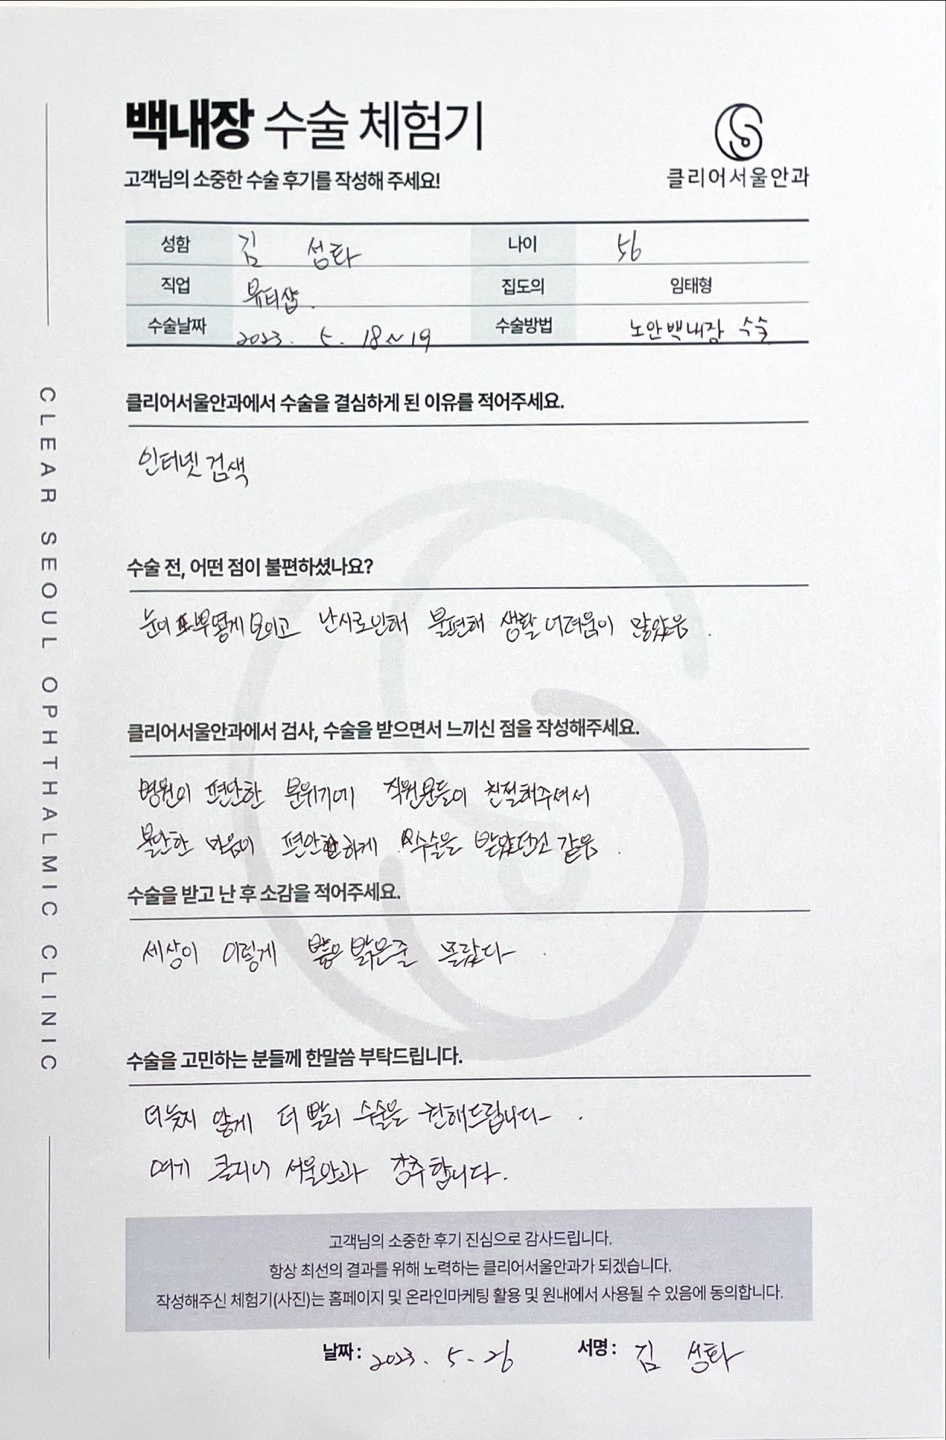 백내장 수술 체험기
고객님의 소중한 수술 후기를 작성해 주세요!
클리어서울안과
성함 김 성타 나이 56
직업 뷰티샵. 집도의 임태형
수술날짜 2023. 5. 18~19 수술방법 노안백내장 수술
CLEAR SEOUL OPHTHALMIC CLINIC
클리어서울안과에서 수술을 결심하게 된 이유를 적어주세요.
인터넷 검색
수술 전, 어떤 점이 불편하셨나요?
눈이 뿌옇게 보이고 난시로인해 불편해 생활 어려움이 많았음.
클리어서울안과에서 검사, 수술을 받으면서 느끼신 점을 작성해주세요.
병원이 편안한 분위기에 직원분들이 친절해주셔서
불안한 마음이 편안하게 수술을 받았던것 같음.
수술을 받고 난 후 소감을 적어주세요.
세상이 이렇게 밝은줄 몰랐다.
수술을 고민하는 분들께 한말씀 부탁드립니다.
더늦지 않게 더 빨리 수술을 권해드립니다.
여기 클리어 서울안과 강추합니다.
고객님의 소중한 후기 진심으로 감사드립니다.
항상 최선의 결과를 위해 노력하는 클리어서울안과가 되겠습니다.
작성해주신 체험기(사진)는 홈페이지 및 온라인마케팅 활용 및 원내에서 사용될 수 있음에 동의합니다.
날짜: 2023. 5. 26 서명: 김 성타